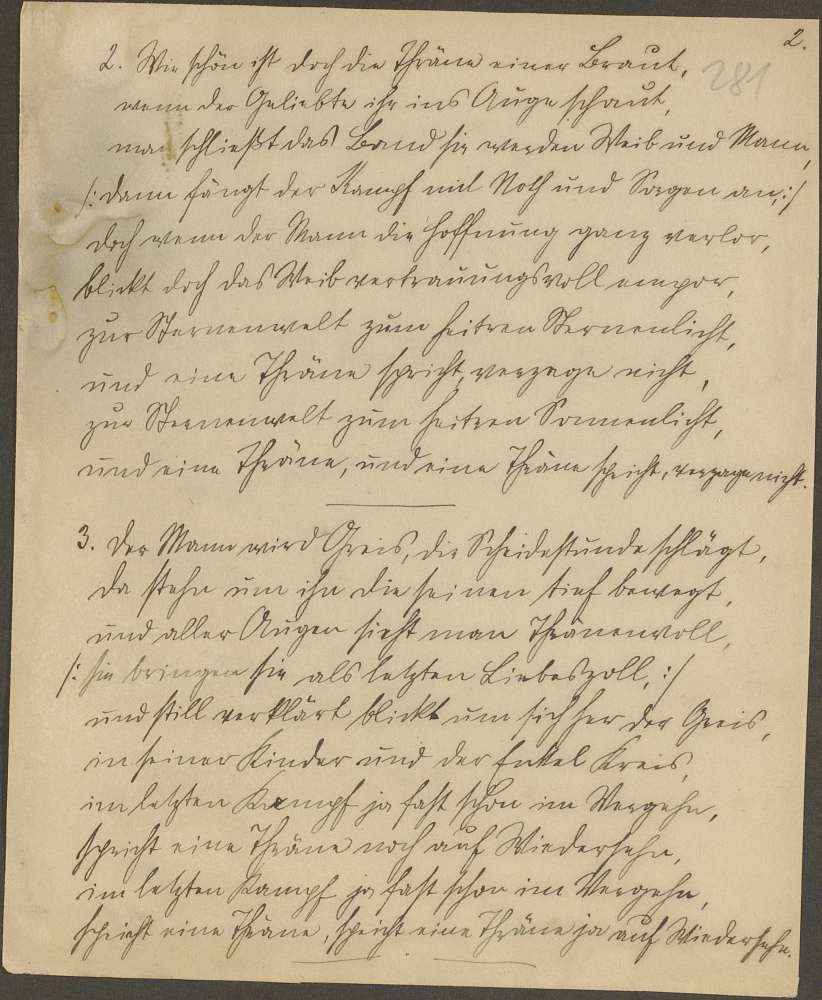 2.
281
2. Wie schön ist doch die Thräne einer Braut,
wenn der Geliebte ihr ins Auge schaut,
man schließt das Band sie werden Weib und Mann,
/: dann fängt der Kampf mit Noth und Sorgen an, :/
doch wenn der Mann die Hoffnung ganz verlor,
blickt doch das Weib vertrauungsvoll empor,
zur Sternenwelt zum heitren Sternenlicht,
und eine Thräne spricht, verzage nicht,
zur Sternenwelt zum heitren Sonnenlicht,
und eine Thräne, und eine Thräne spricht, verzage nicht.
3. Der Mann wird Greis, die Scheidestunde schlägt,
da stehn um ihn die seinen tief bewegt,
und aller Augen sieht man Thränenvoll,
/: sie bringen sie als letzten Liebeszoll, :/
und still verklärt blickt um sich her der Greis,
in seiner Kinder und der Enkel Kreis,
im letzten Kampf ja fast schon im Vergehn,
spricht eine Thräne noch auf Wiedersehn,
im letzten Kampf ja fast schon im Vergehn,
spricht eine Thräne, spricht eine Thräne ja auf Wiedersehn.